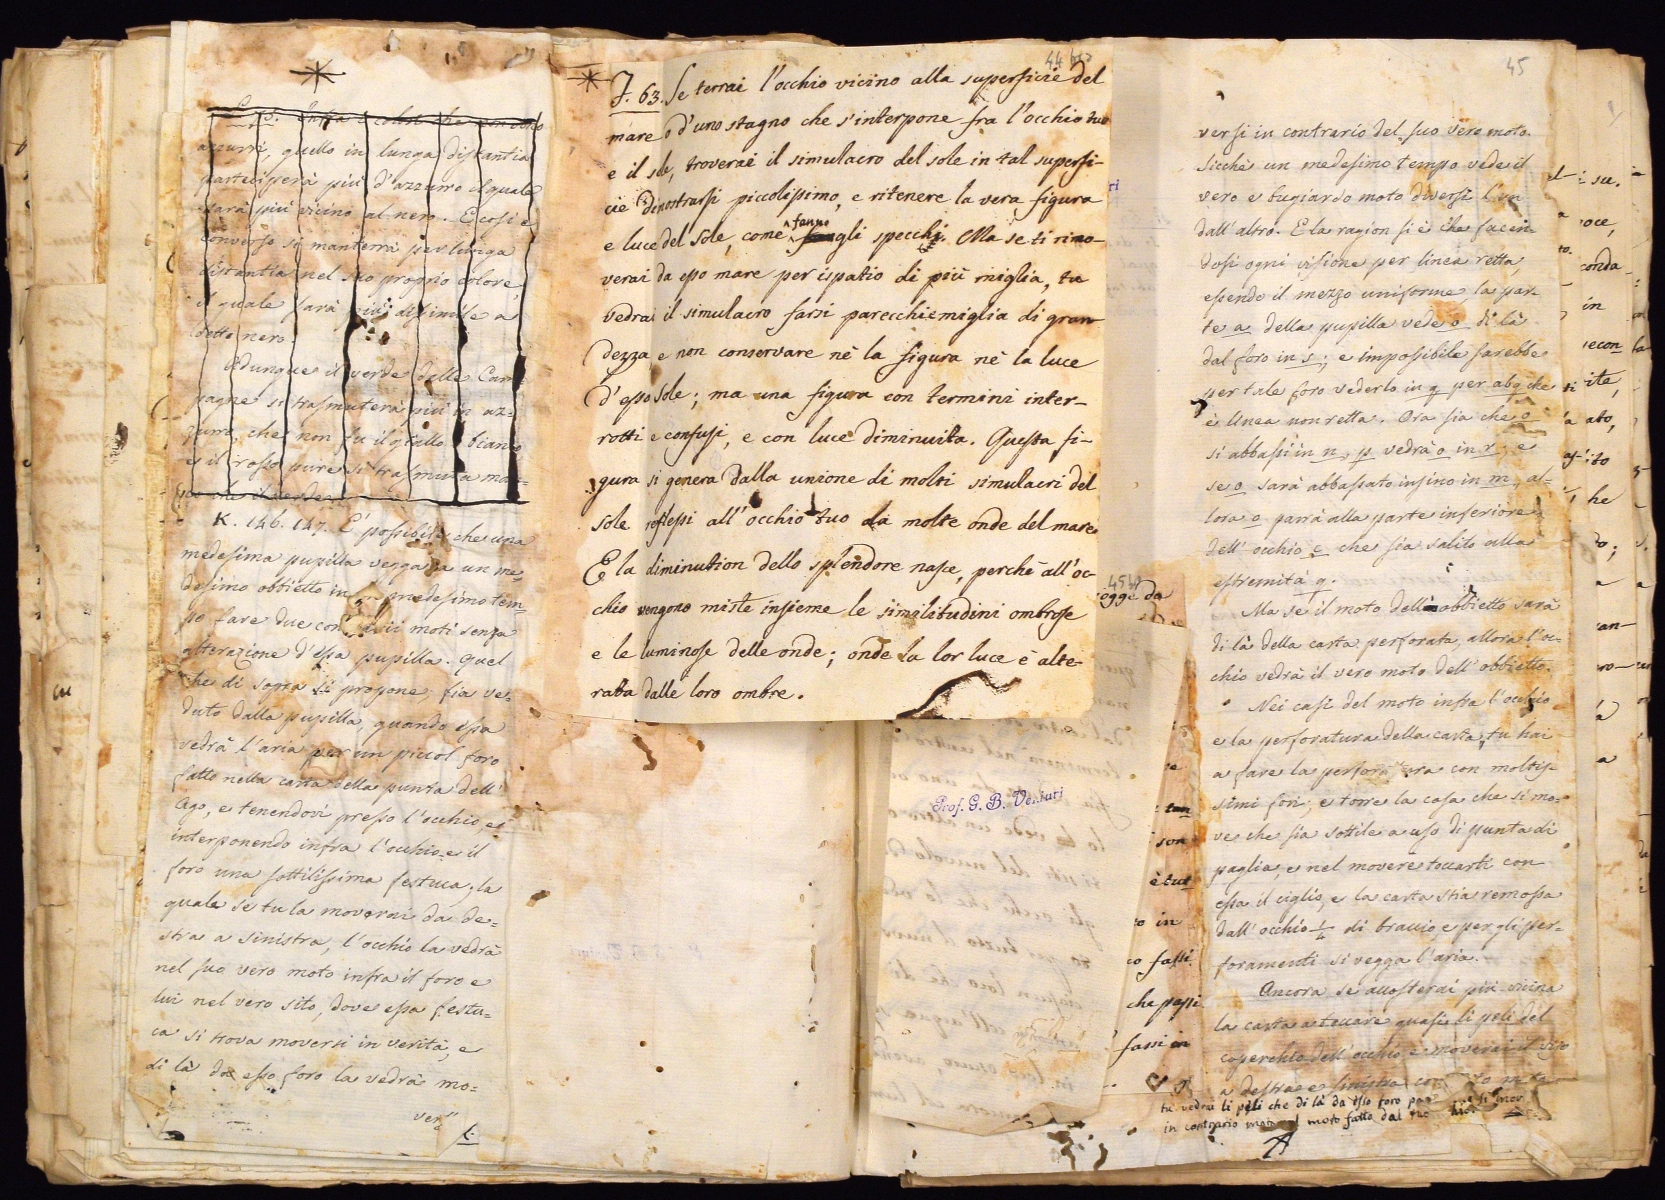 azzurri, quello in lunga distantia
parteciperà più d'azzurro il quale
sarà più vicino al nero. E così e
converso si manterrà per lunga
distantia nel suo proprio colore,
il quale sarà più dissimile a
detto nero.
Adunque il verde delle Cam=
pagne si trasmuterà più in az=
zurro, che non fu il giallo o bianco
e il rosso pure si trasmuta
K. 146. 147. E' possibile che una
medesima pupilla vegga a un me=
desimo obbietto in un medesimo tem=
po fare due con moti senza
alterazione d'essa pupilla. Quel
che di sopra si propone, fia ve=
duto dalla pupilla, quando essa
vedrà l'aria per un piccol foro
fatto nella carta della punta dell'
Ago, e tenendovi presso l'occhio, e
interponendo infra l'occhio e il
foro una sottilissima festuca; la
quale se tu la moverai da de=
stra a sinistra, l'occhio la vedrà
nel suo vero moto infra il foro e
lui nel vero sito, dove essa festu=
ca si trova moversi in verità, e
di là da esso foro la vedrà mo=
44 bis
F. 63. Se terrai l'occhio vicino alla superficie del
mare o d'uno stagno che s'interpone fra l'occhio tuo
e il sole, troverai il simulacro del sole in tal superfi-
cie dimostrarsi piccolissimo, e ritenere la vera figura
e luce del sole, come fanno gli specchi. Ma se ti rimo-
verai da esso mare per ispatio di più miglia, tu
vedrai il simulacro farsi parecchie miglia di gran-
dezza e non conservare nè la figura nè la luce
d'esso sole; ma una figura con termini inter-
rotti e confusi, e con luce diminuita. Questa fi-
gura si genera dalla unione di molti simulacri del
sole reflessi all'occhio tuo da molte onde del mare.
E la diminution dello splendore nasce, perchè all'oc-
chio vengono miste insieme le similitudini ombrose
e le luminose delle onde; onde la lor luce è alte-
rata dalle loro ombre.
Prof. G. B. Venturi
45
versi in contrario del suo vero moto.
Sicchè un medesimo tempo vede il
vero e bugiardo moto diversi l'un
dall'altro. E la ragion si è che facen
dosi ogni visione per linea retta,
essendo il mezzo uniforme, la par=
te a della pupilla vede o di là
dal foro in s; e impossibile sarebbe
per tale foro vederlo in q per abq che
è linea non retta. Ora sia che o
si abbassi in n, p vedrà o in r; e
se o sarà abbassato insino in m, al=
lora o parrà alla parte inferiore
dell'occhio c che sia salito alla
estremità q.
Ma se il moto dell'obbietto sarà
di là della carta perforata, allora l'oc=
chio vedrà il vero moto dell'obbietto.
Nei casi del moto infra l'occhio
e la perforatura della carta, tu hai
a fare la perforatura con moltis=
simi fori; e torre la cosa che si mo=
ve che sia sottile a uso di punta di
paglia, e nel movere toccarti con
essa il ciglio, e la carta stia remossa
dall'occhio 1/4 di braccio, e per gli per=
foramenti si vegga l'aria.
Ancora se accosterai più vicina
la carta a toccare quasi li peli del
coperchio dell'occhio, e moverai il viso
a destra e sinistra
tu vedrai li peli che di là da esso foro
in contrario moto al moto fatto dal